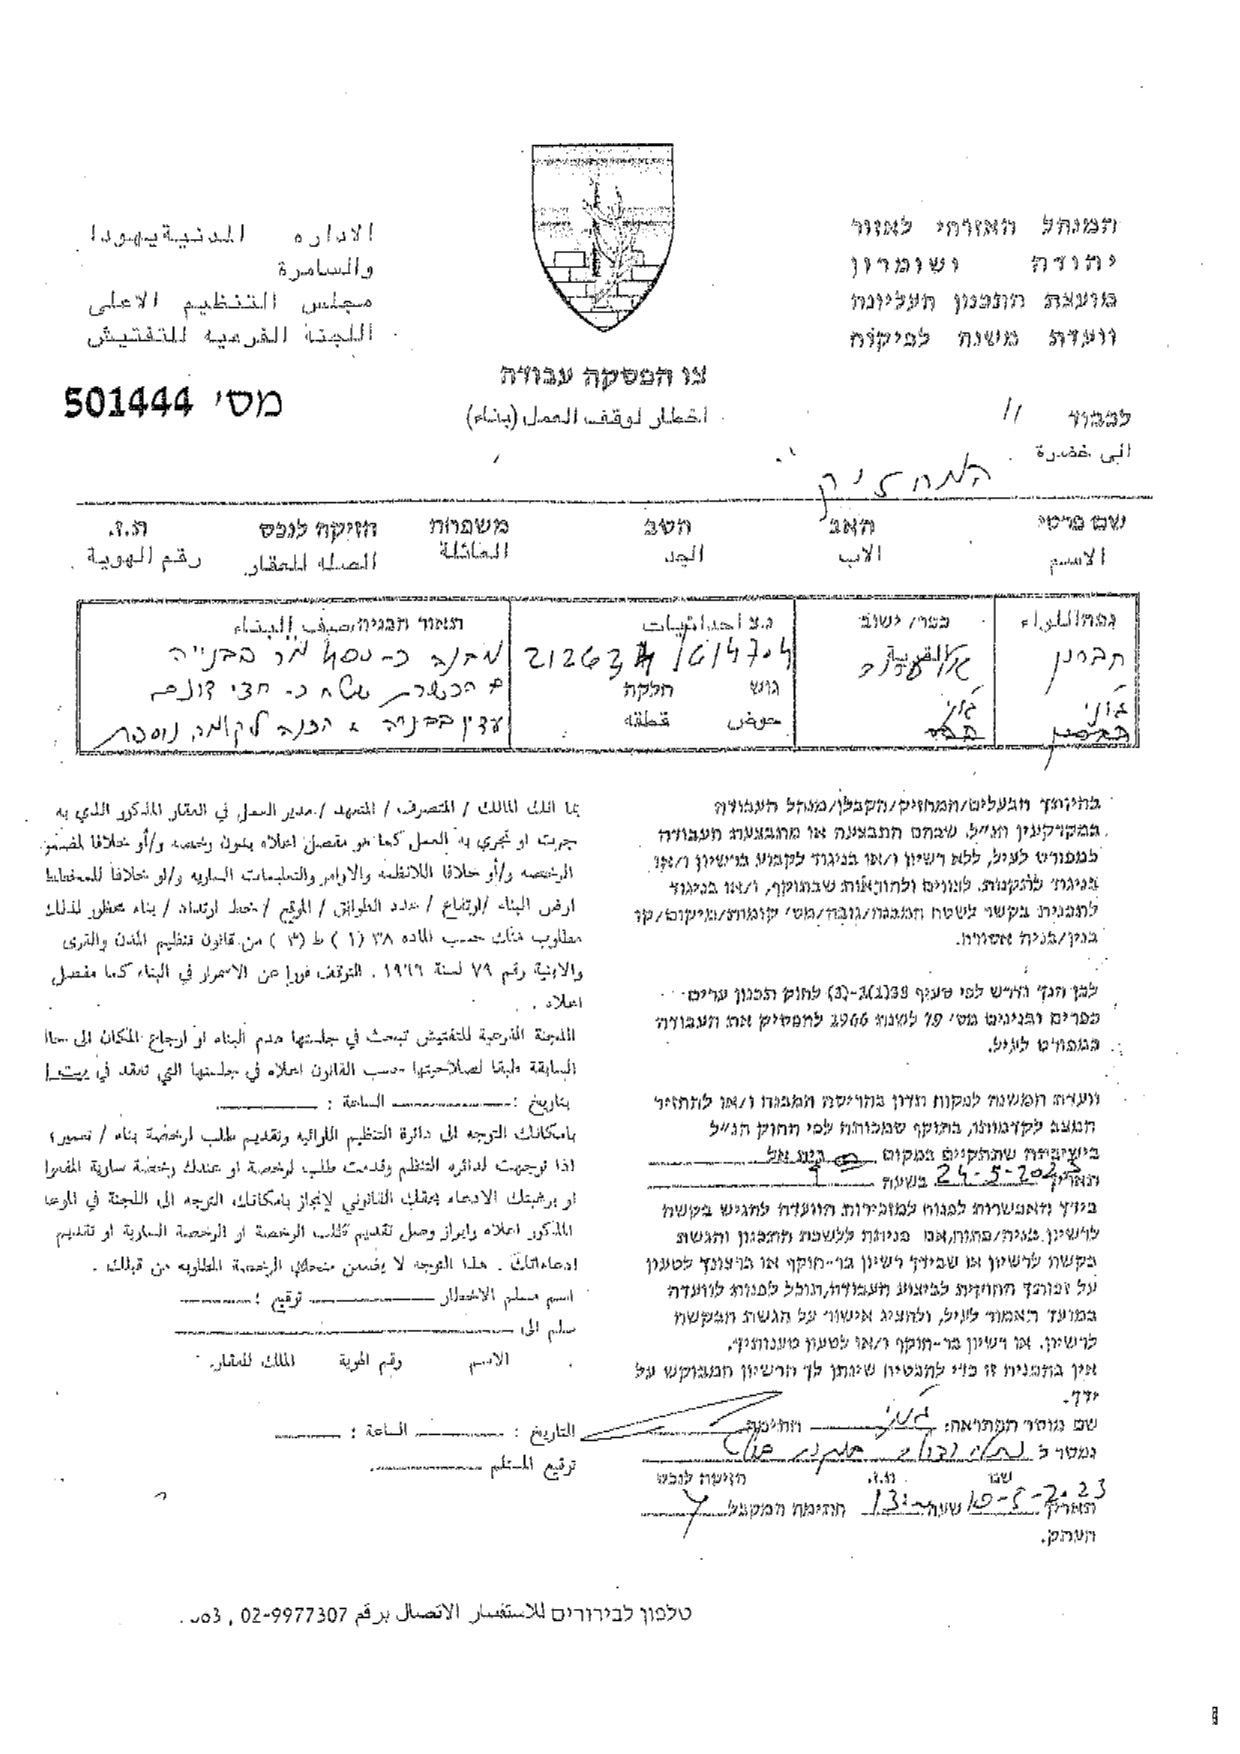 המנהל האזרחי לאזור
יהודה ושומרון
מועצת התכנון העליונה
וועדת משנה לפיקוח
الاداره المدنية يهودا
والسامرة
مجلس التنظيم الاعلى
اللجنة الفرعيه للتفتيش
צו הפסקה עבודה
اخطار لوقف العمل (بناء)
מס' 501444
לכבוד
الى حضرة
המחזיק
שם פרטי האב הסב משפחה חזיקה לנכס ת.ז.
الاسم الاب الجد العائلة الصله للعقار رقم الهوية
נפה/اللواء כפר/ ישוב القرية נ.צ احداثيات תאור הבניה/صيف البناء
חברון
212634 / 614704
גוש חלקה
حوض قطعه
מבנה כ-450 מר בבנייה
הכשרת שטח כ- חצי דונם
עדין בבנייה הכנה לקומה נוספת
בהיותך הבעלים/המחזיק/הקבלן/מנהל העבודה
במקרקעין הנ"ל, שבהם התבצעה או מתבצעת העבודה
כמפורט לעיל, ללא רשיון ו/או בניגוד לקבוע ברשיון ו/או
בניגוד לתקנות, לצווים ולהוראות שבתוקף, ו/או בניגוד
לתכנית בקשר לשטח המבנה/גובה/מס' קומות/מיקום/קו
בנין/בניה אסורה.
לכן הנך נדרש לפי סעיף 38(1)-(3) לחוק תכנון ערים
כפרים ובנינים מס' 79 לשנת 1966 להפסיק את העבודה
כמפורט לעיל.
וועדת המשנה לפקוח תדון בהריסת המבנה ו/או להחזיר
המצב לקדמותו, בתוקף שמכותה לפי החוק הנ"ל
בישיבתה שתתקיים במקום בית אל
תאריך 24-5-2023 בשעה 9
בידך האפשרות לפנות למזכירות הוועדה להגיש בקשה
לרשיון בניה/פתוח, אם פנית ללשכת התכנון והגשת
בקשה לרשיון או שבידך רשיון בר-תוקף או ברצונך לטעון
על זכותך החוקית לביצוע העבודה, תוכל לפנות לוועדה
במועד האמור לעיל, ולהציג אישור על הגשת הבקשה
לרשיון, או רשיון בר-תוקף ו/או לטעון טענותיך.
אין בהפניה זו כדי להבטיח שינתן לך הרשיון המבוקש על
ידך.
שם מוסר ההתראה: חתימה
נמסר ל
שם ת.ז. הזיקה לנכס
תאריך 10-5-2023 שעה 13: חתימת המקבל
העתק.
بما انك المالك / المتصرف / المتعهد / مدير العمل في العقار المذكور الذي به
جرت او تجري به العمل كما هو مفصل اعلاه بدون رخصه و/أو خلافا لمضمون
الرخصه و/أو خلافا للانظمه والاوامر والتعليمات الساريه و/او خلافا للمخطط
ارض البناء /ارتفاع / عدد الطوابق / الموقع / خط ارتداد / بناء محظور لذلك
مطلوب منك حسب الماده ٣٨ ( ١ ) ط ( ٣ ) من قانون تنظيم المدن والقرى
والابنية رقم ٧٩ لسنة ١٩٦٦ . التوقف فورا عن الاسمرار في البناء كما مفصل
اعلاه .
اللجنة الفرعية للتفتيش تبحث في جلستها هدم البناء او ارجاع المكان الى
السابقة طبقا لصلاحيتها حسب القانون اعلاه في جلستها التي تعقد في
بتاريخ : الساعة :
بامكانك التوجه الى دائرة التنظيم اللوائيه وتقديم طلب لرخصة بناء / تعمير
اذا توجهت لدائره التنظيم وقدمت طلب لرخصة او عندك رخصة سارية المفعول
او برغبتك الادعاء بحقك القانوني لانجاز بامكانك التوجه الى اللجنة في الموعد
المذكور اعلاه وابراز وصل تقديم طلب الرخصة او الرخصة السارية او تقديم
ادعاءاتك . هذا التوجه لا يضمن منحك الرخصة المطلوبه من قبلك .
اسم مسلم الاخطار توقيع :
سلم الى
الاسم رقم الهوية الملك للعقار.
التاريخ : الساعة :
توقيع المستلم
טלפון לבירורים للاستفسار الاتصال برقم 02-9977307